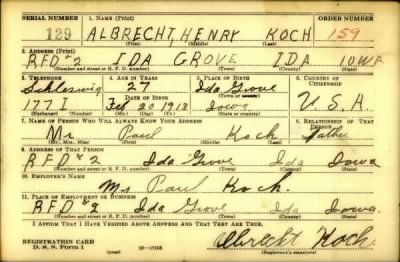 SERIAL NUMBER 1. NAME (Print) ORDER NUMBER
129 ALBRECHT, HENRY KOCH 159
(First) (Middle) (Last)
2. ADDRESS (Print)
RFD #2 IDA GROVE IDA IOWA
(Number and street or R. F. D. number) (Town) (County) (State)
3. TELEPHONE 4. AGE IN YEARS 5. PLACE OF BIRTH 6. COUNTRY OF CITIZENSHIP
Schleswig 27 Ida Grove
(Town or county)
DATE OF BIRTH
177 I Feb 20 1913 Iowa U.S.A.
(Exchange) (Number) (Mo.) (Day) (Yr.) (State or country)
7. NAME OF PERSON WHO WILL ALWAYS KNOW YOUR ADDRESS 8. RELATIONSHIP OF THAT PERSON
Mr Paul Koch Father
(Mr., Mrs., Miss) (First) (Middle) (Last)
9. ADDRESS OF THAT PERSON
RFD #2 Ida Grove Ida Iowa
(Number and street or R. F. D. number) (Town) (County) (State)
10. EMPLOYER'S NAME
Mr Paul Koch.
11. PLACE OF EMPLOYMENT OR BUSINESS
RFD #2 Ida Grove Ida Iowa.
(Number and street or R. F. D. number) (Town) (County) (State)
I AFFIRM THAT I HAVE VERIFIED ABOVE ANSWERS AND THAT THEY ARE TRUE.
REGISTRATION CARD
D. S. S. Form 1 (over) Albrecht Koch
(Registrant's signature)